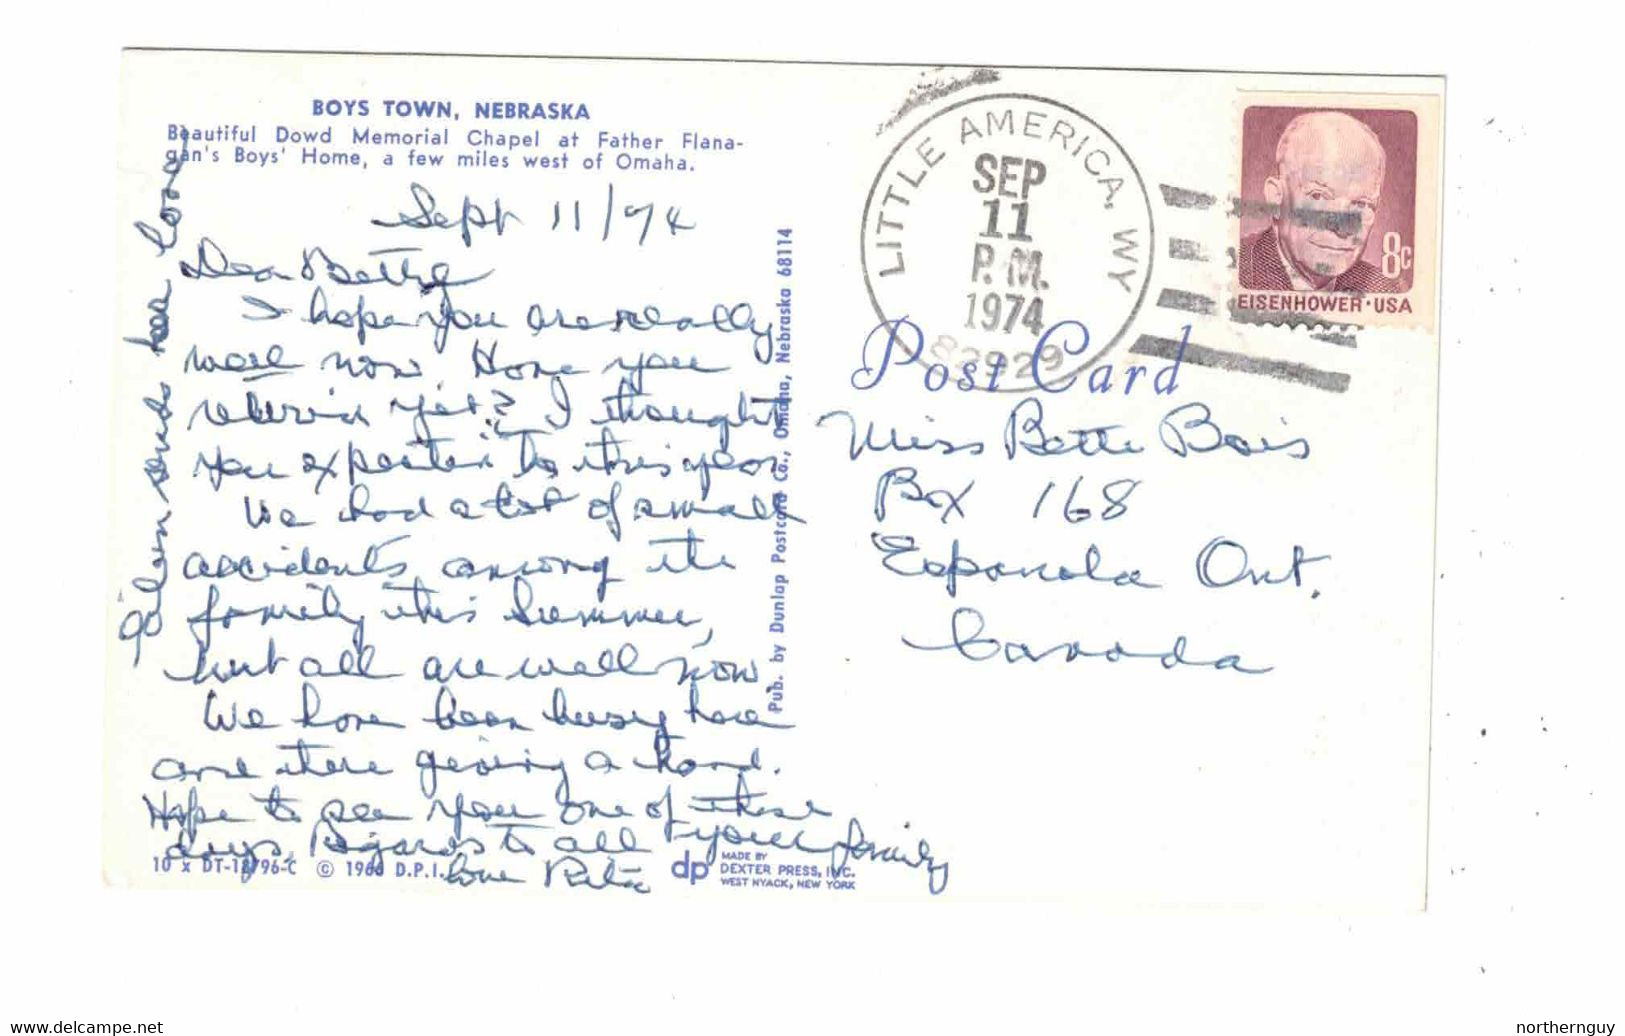 BOYS TOWN, NEBRASKA
Beautiful Dowd Memorial Chapel at Father Flana-
gan's Boys' Home, a few miles west of Omaha.
Sept 11/74
Dear Bette
I hope you are really
well now. Have you
retired yet? I thought
you expected to this year
We had a lot of small
accidents among the
family this Summer,
but all are well now.
We have been busy here
and there giving a hand.
Hope to see you one of these
days. Regards to all your family
Love Rita
sends her love
10 x DT-18796-C © 1966 D.P.I.
dp MADE BY
DEXTER PRESS, INC.
WEST NYACK, NEW YORK
Pub. by Dunlap Postcard Co., Omaha, Nebraska 68114
LITTLE AMERICA, WY
SEP
11
P.M.
1974
82929
8c
EISENHOWER · USA
Post Card
Miss Bette Bois
Box 168
Espanola Ont.
Canada
www.delcampe.net
northernguy